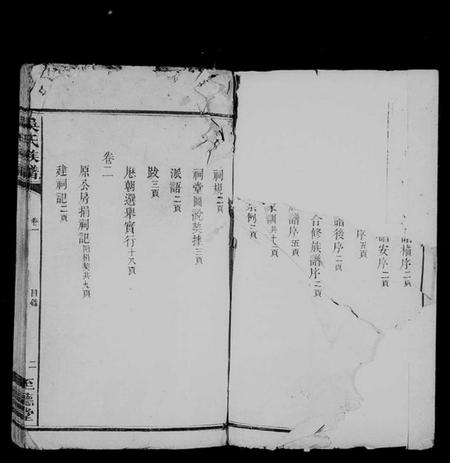 譜橫序二頁
譜安序二頁
序五頁
譜後序二頁
合修族譜序二頁
譜序五頁
家訓共十二頁
祭例二頁
祠規二頁
祠堂圖說契據三頁
派語二頁
跋三頁
歷朝選舉實行十八頁
卷二
原公房捐祠記附梢契共九頁
建祠記二頁
吳氏族譜
卷一
目錄
二
至德堂